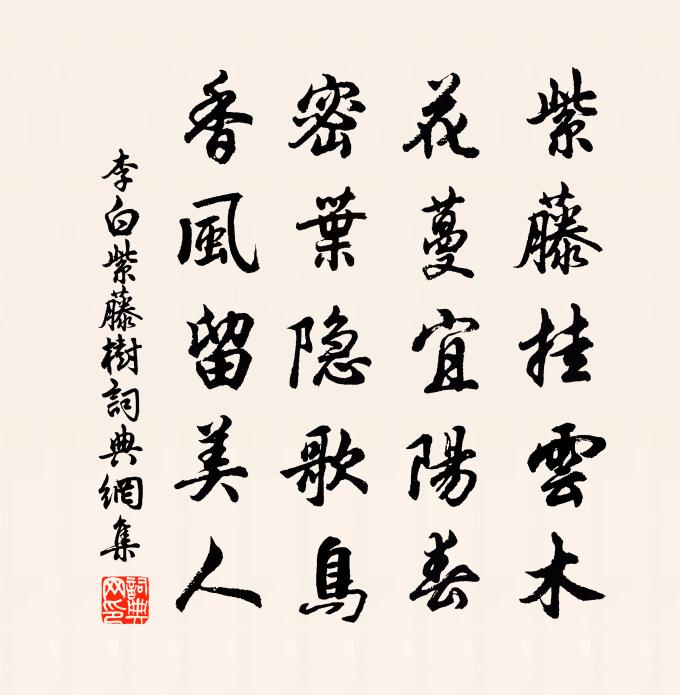 紫藤挂雲木
花蔓宜陽春
密葉隐歌鳥
香風留美人
李白紫藤樹詞典網集
詞典網印